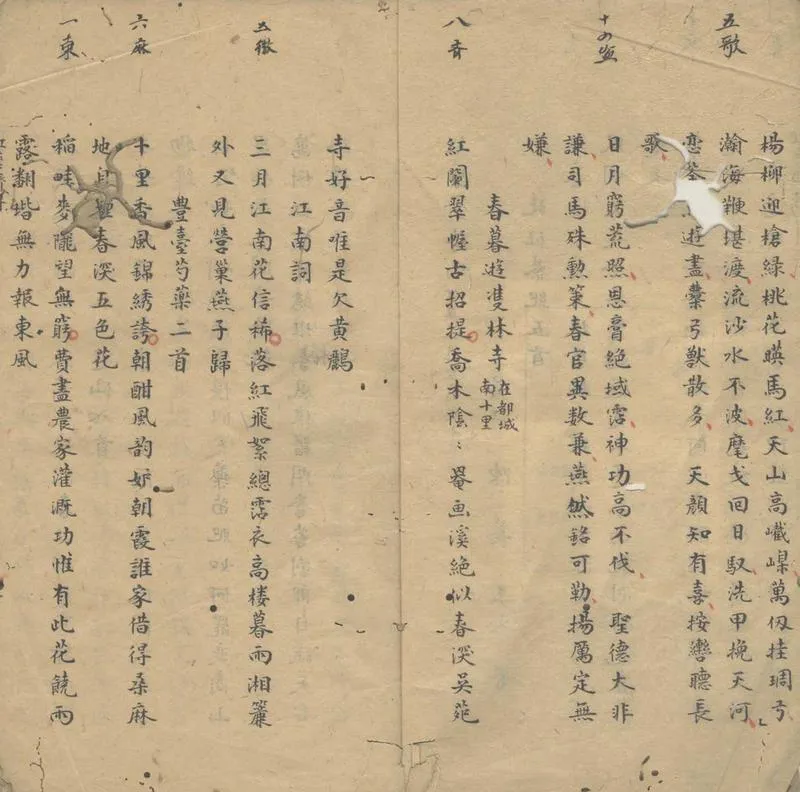 五歌
楊柳迎槍綠桃花暎馬紅天山高巀嶫萬仞挂琱弓
瀚海鞭堪渡流沙水不波麾戈回日馭洗甲挽天河
恋 遊盡櫜弓獸散多 天顏知有喜按轡聽長
歌
十四塩
日月窮荒照恩膏絕域霑神功高不伐 聖德大非
謙司馬殊勳策春官異數兼燕然銘可勒揚厲定無
嫌
春暮遊雙林寺 在都城南十里
八齊
紅闌翠幄古招提喬木陰〻罨画溪絕似春深吳苑
寺好音唯是欠黃鸝
江南詞
五微
三月江南花信稀落紅飛絮總霑衣高楼暮雨湘簾
外又見營巢燕子歸
豐臺芍藥二首
六麻
十里香風錦綉誇朝酣風韵妒朝霞誰家借得桑麻
地 春深五色花
一東
稻畦麥隴望無窮費盡農家灌溉功惟有此花饒雨
露翻堦無力報東風